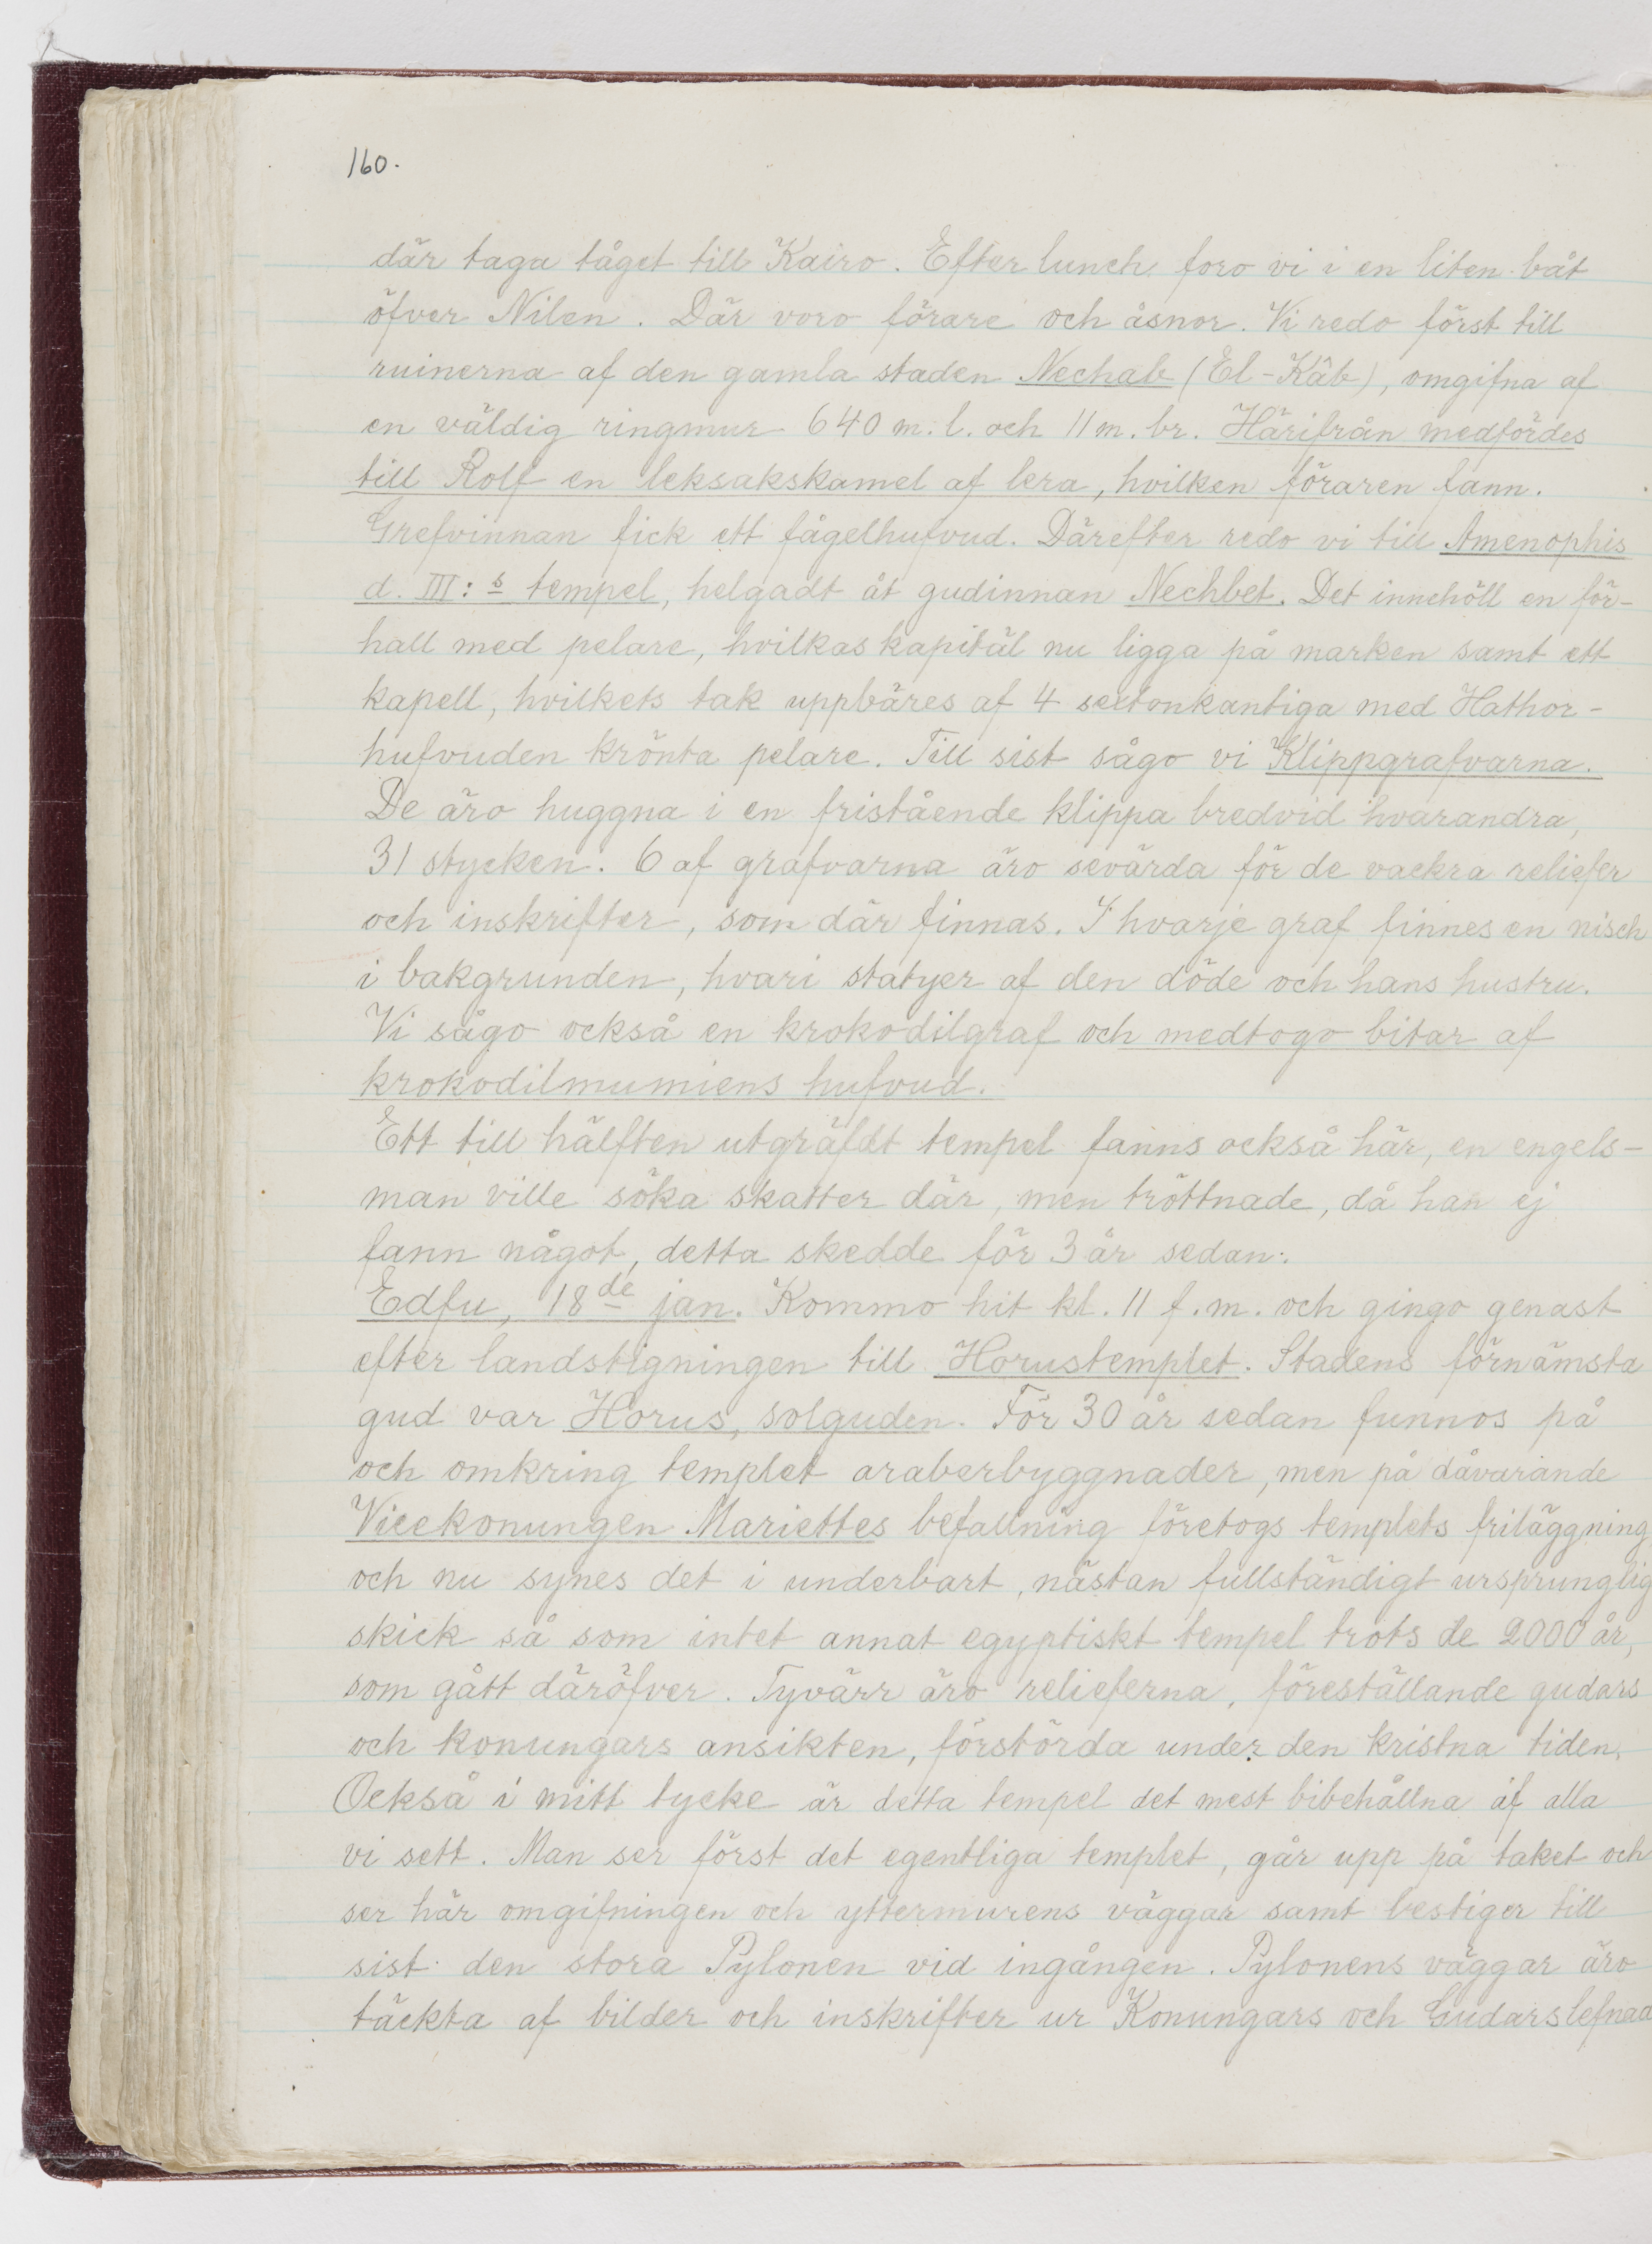 160.
där taga tåget till Kairo. Efter lunch foro vi i en liten båt
öfver Nilen. Där voro förare och åsnor. Vi redo först till
ruinerna af den gamla staden Nechab (El-Kâb), omgifna af
en väldig ringmur 640 m. l. och 11 m. br. Härifrån medfördes
till Rolf en leksakskamel af lera, hvilken föraren fann.
Grefvinnan fick ett fågelhufvud. Därefter redo vi till Amenophis
d. III:s tempel, helgadt åt gudinnan Nechbet. Det innehöll en för-
hall med pelare, hvilkas kapitäl nu ligga på marken samt ett
kapell, hvilkets tak uppbäres af 4 sextonkantiga med Hathor-
hufvuden krönta pelare. Till sist sågo vi Klippgrafvarna.
De äro huggna i en fristående klippa bredvid hvarandra,
31 stycken. 6 af grafvarna äro sevärda för de vackra reliefer
och inskrifter, som där finnas. I hvarje graf finnes en nisch
i bakgrunden, hvari statyer af den döde och hans hustru.
Vi sågo också en krokodilgraf och medtogo bitar af
krokodilmumiens hufvud.
Ett till hälften utgräfdt tempel fanns också här, en engels-
man ville söka skatter där, men tröttnade, då han ej
fann något, detta skedde för 3 år sedan.
Edfu, 18de jan. Kommo hit kl. 11 f.m. och gingo genast
efter landstigningen till Horustemplet. Stadens förnämsta
gud var Horus, solguden. För 30 år sedan funnos på
och omkring templet araberbyggnader, men på dåvarande
Vicekonungen Mariettes befallning företogs templets friläggning
och nu synes det i underbart, nästan fullständigt ursprunglig
skick så som intet annat egyptiskt tempel trots de 2000 år,
som gått däröfver. Tyvärr äro relieferna, föreställande gudars
och konungars ansikten, förstörda under den kristna tiden.
Också i mitt tycke är detta tempel det mest bibehållna af alla
vi sett. Man ser först det egentliga templet, går upp på taket och
ser här omgifningen och yttermurens väggar samt bestiger till
sist den stora Pylonen vid ingången. Pylonens väggar äro
täckta af bilder och inskrifter ur Konungars och Gudars lefnad